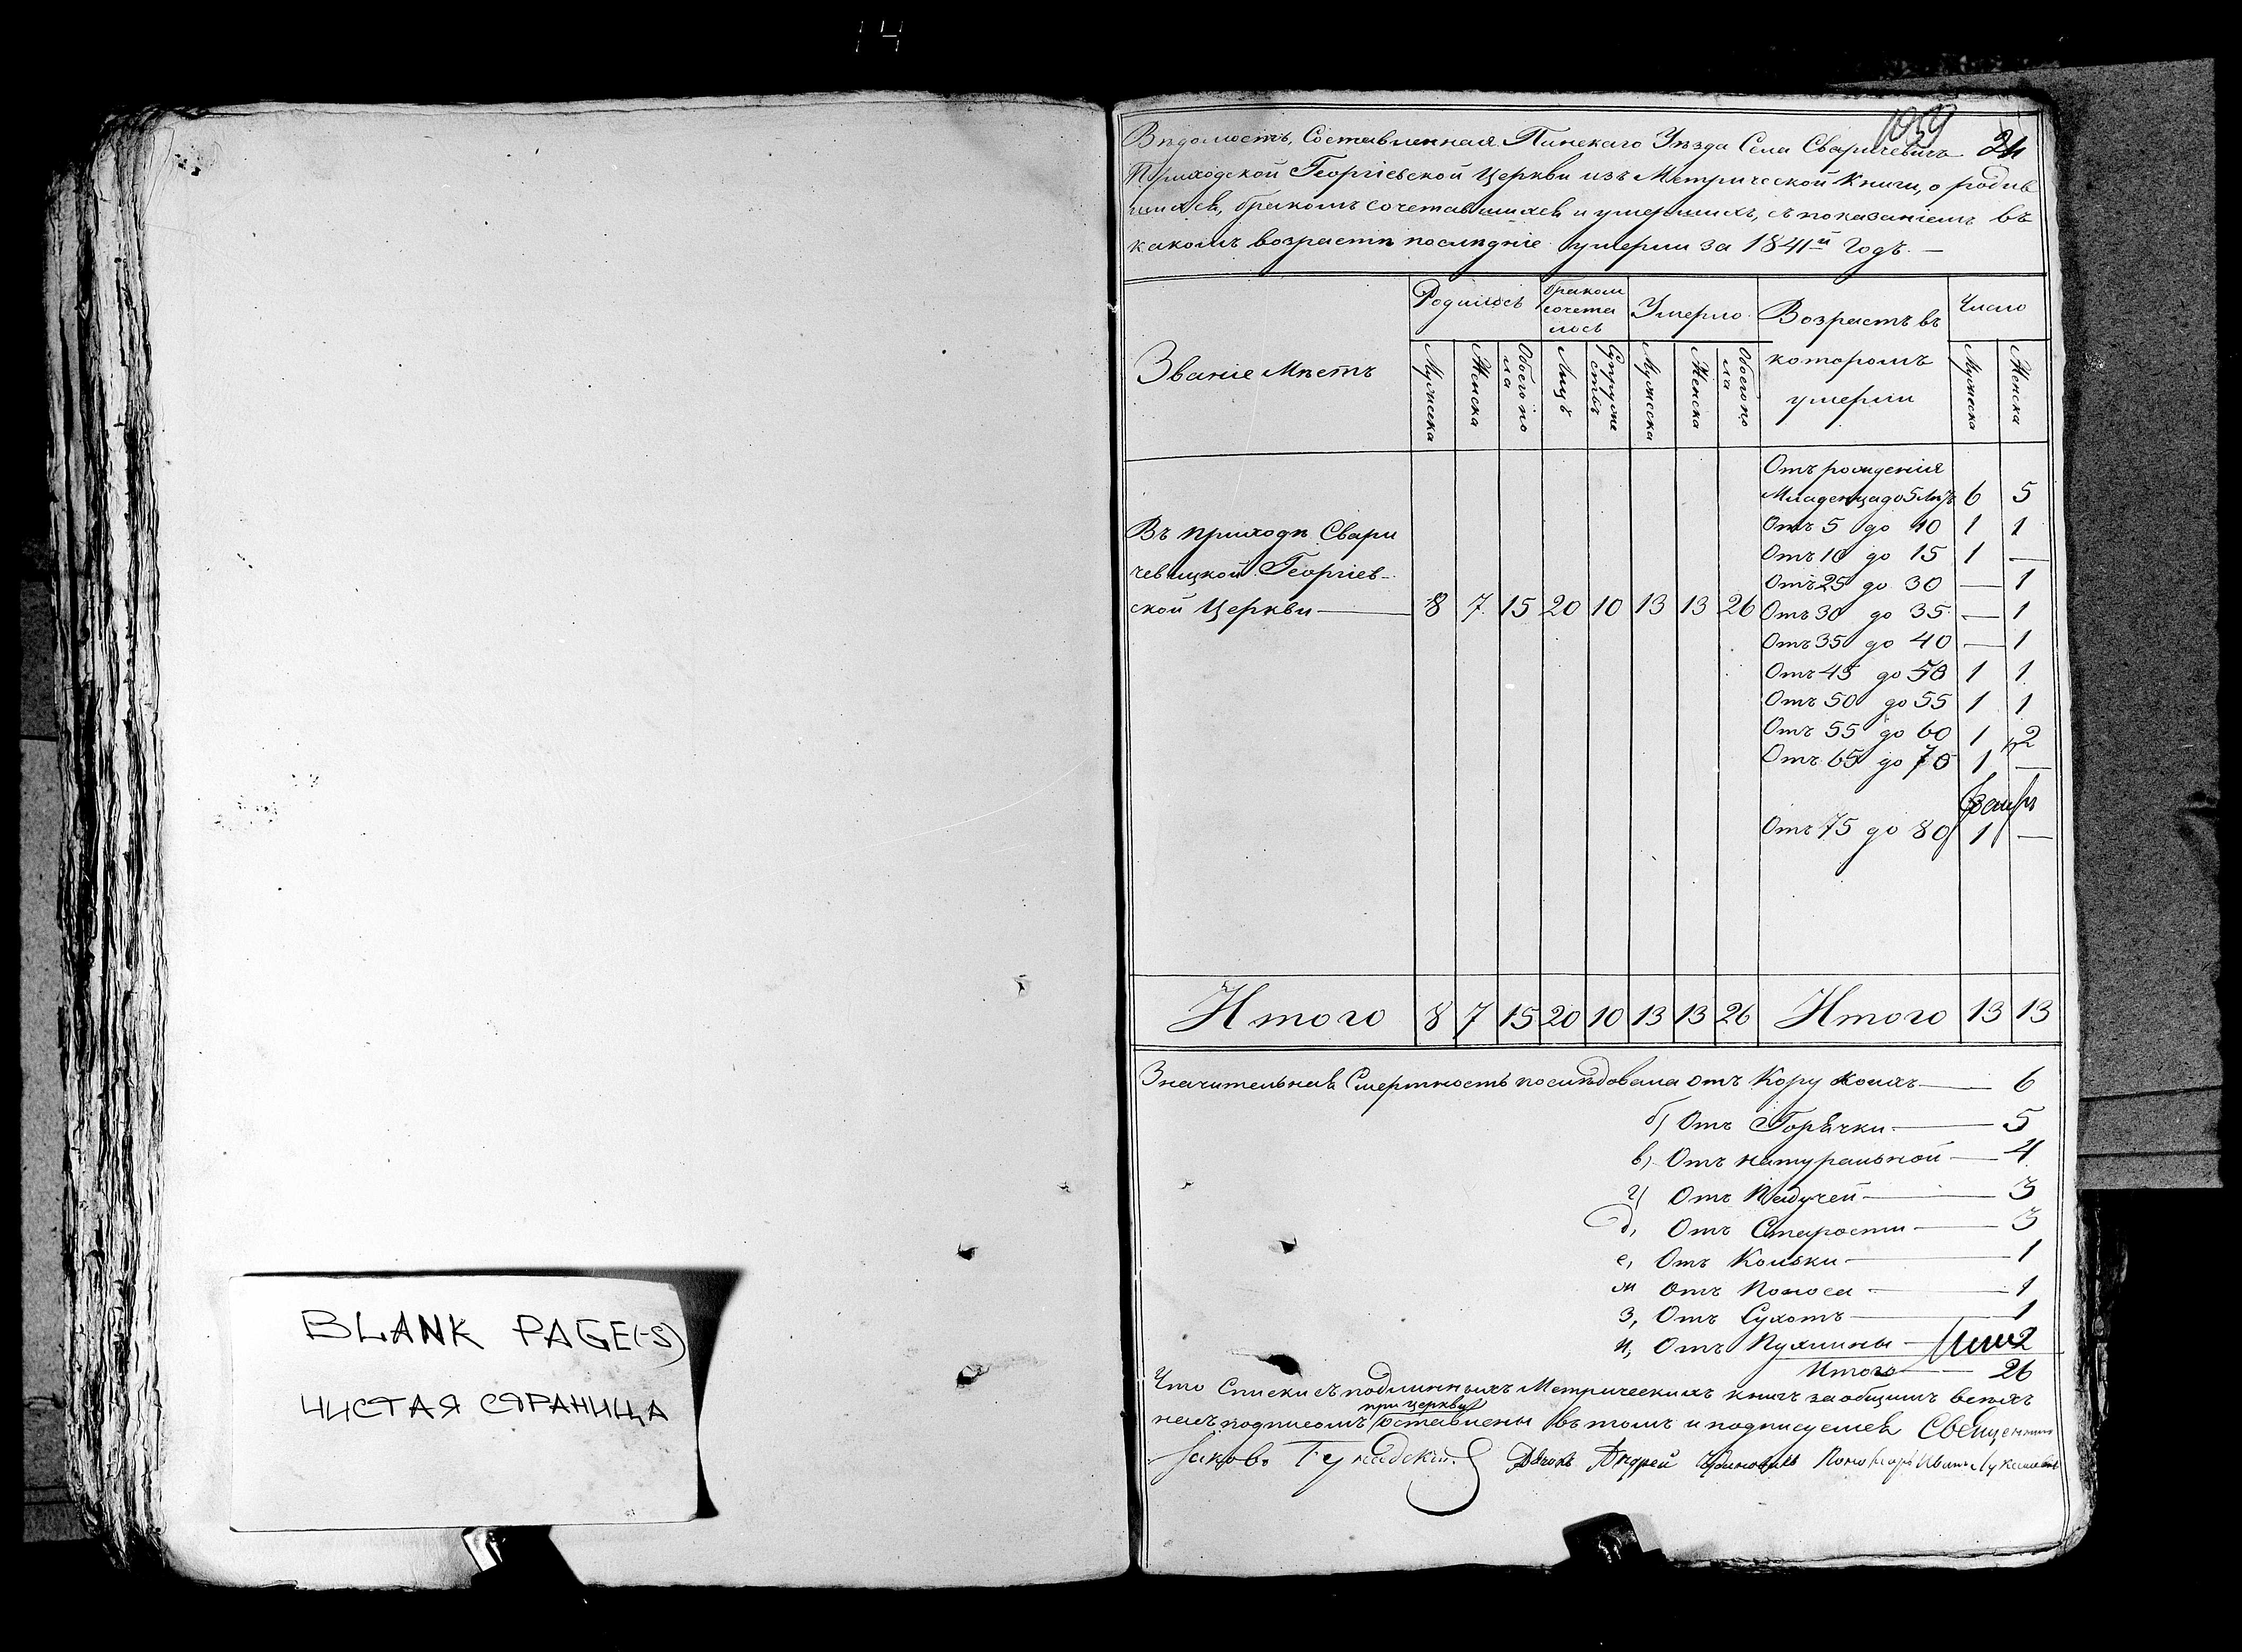 14
BLANK PAGE(-S)
ЧИСТАЯ СТРАНИЦА
1059
Вѣдомость, Составленная Пинскаго Уѣзда Села Сваричевичь 24
Приходской Георгіевской Церкви изъ Метрической Книги, о родив
шихся, бракомъ сочетавшихся и умершихъ, съ показаніемъ въ
какомъ возрастѣ послѣдніе умерли за 1841й Годъ. —
Званіе Мѣстъ
Родилось
бракомъ сочета лось
Умерло
Возрастъ въ которомъ умерли
Число
Мужеска Женска Обоего по ла Лицъ Супруже ствъ Мужеска Женска Обоего по ла Мужеска Женска
Отъ рожденія
Младенца до 5 лѣтъ 6 5
Отъ 5 до 10 1 1
Отъ 10 до 15 1 —
Отъ 25 до 30 — 1
Отъ 30 до 35 — 1
Отъ 35 до 40 — 1
Отъ 45 до 50 1 1
Отъ 50 до 55 1 1
Отъ 55 до 60 1 2
Отъ 65 до 70 1 —
Отъ 75 до 80 1 —
Въ приходѣ Свари
чевицкой Георгіев-
ской Церкви — 8 7 15 20 10 13 13 26
Итого 8 7 15 20 10 13 13 26 Итого 13 13
Значительная Смертность послѣдовала отъ Кору хомахъ — 6
б) Отъ Горячки — 5
в) Отъ натуральной — 4
г) Отъ Падучей — 3
д, Отъ Старости — 3
е, Отъ Кольки — 1
ж Отъ Поноса — 1
з, Отъ Сухотъ — 1
и, Отъ Пухлины — 2
Итого — 26
Что Списки съ подлинныхъ Метрическихъ книгъ за общимъ всѣхъ
при церкви
насъ подписомъ оставлены въ томъ и подписуемся Священникъ
Іаковъ Дьячокъ Андрей Пономарь Иванъ